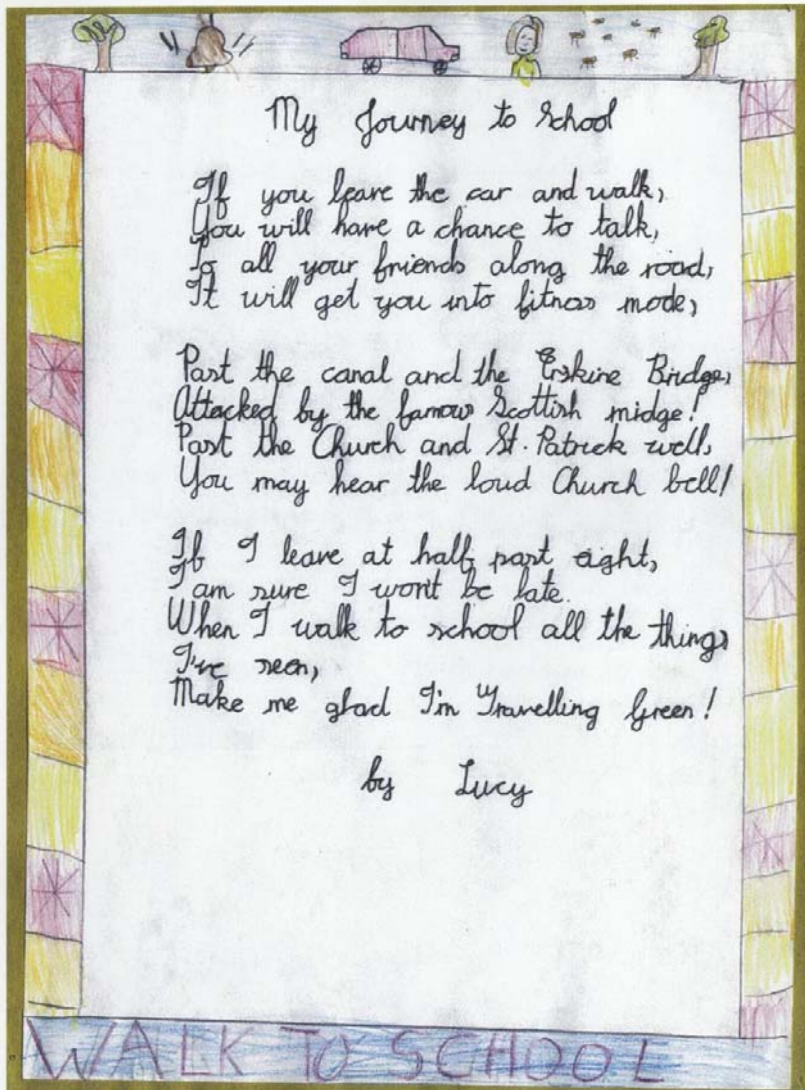 My Journey to School
If you leave the car and walk,
You will have a chance to talk,
To all your friends along the road,
It will get you into fitness mode,
Past the canal and the Erskine Bridge,
Attacked by the famous Scottish midge!
Past the Church and St. Patrick well,
You may hear the loud Church bell!
If I leave at half past eight,
I am sure I won't be late.
When I walk to school all the things
I've seen,
Make me glad I'm Travelling Green!
by Lucy
WALK TO SCHOOL